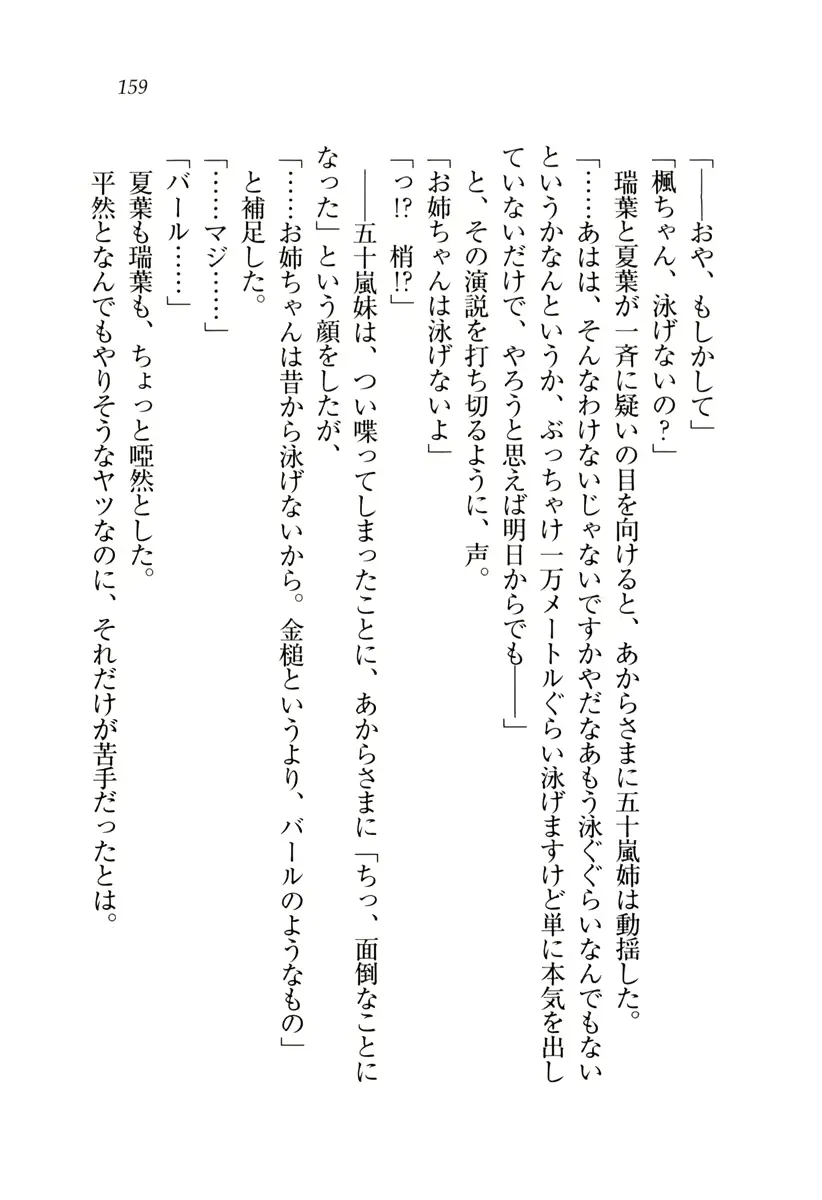 159
「――おや、もしかして」
「楓ちゃん、泳げないの？」
瑞葉と夏葉が一斉に疑いの目を向けると、あからさまに五十嵐姉は動揺した。
「……あはは、そんなわけないじゃないですかやだなあもう泳ぐぐらいなんでもない
というかなんというか、ぶっちゃけ一万メートルぐらい泳げますけど単に本気を出し
ていないだけで、やろうと思えば明日からでも――」
と、その演説を打ち切るように、声。
「お姉ちゃんは泳げないよ」
「っ!?　梢!?」
――五十嵐妹は、つい喋ってしまったことに、あからさまに「ちっ、面倒なことに
なった」という顔をしたが、
「……お姉ちゃんは昔から泳げないから。金槌というより、バールのようなもの」
と補足した。
「……マジ……」
「バール……」
夏葉も瑞葉も、ちょっと啞然とした。
平然となんでもやりそうなヤツなのに、それだけが苦手だったとは。